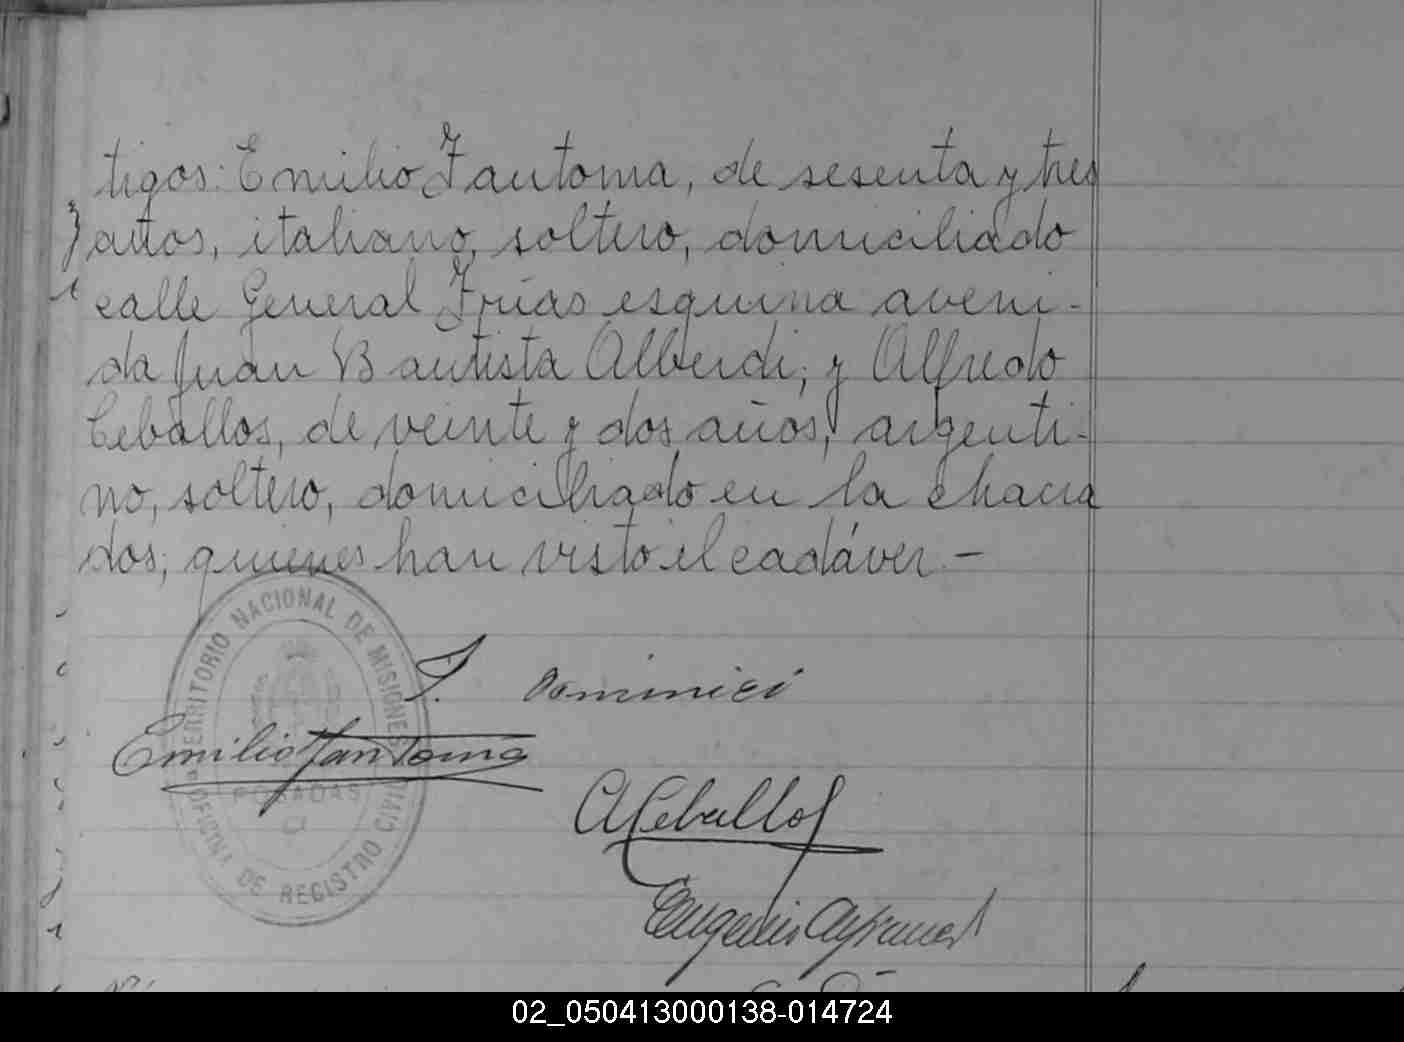 tigos: Emilio Fantoma, de sesenta y tres
años, italiano, soltero, domiciliado
calle General Frías esquina aveni-
da Juan Bautista Alberdi; y Alfredo
Ceballos, de veinte y dos años, argenti-
no, soltero, domiciliado en la chacra
dos; quienes han visto el cadáver.—
TERRITORIO NACIONAL DE MISIONES
Dominici
Emilio Fantoma
POSADAS
OFICINA DE REGISTRO CIVIL
A Ceballos
Eugenio
02_050413000138-014724